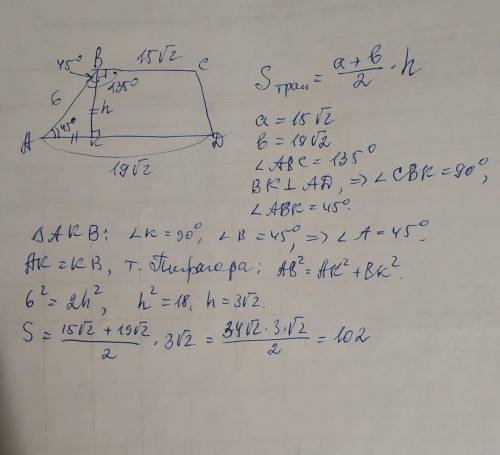 45° B 15√2 C
6 135°
h
A 45° K D
19√2
S трап = (a + b)/2 · h
a = 15√2
b = 19√2
∠ABC = 135°
BK ⊥ AD, => ∠CBK = 90°,
∠ABK = 45°.
ΔAKB: ∠K = 90°, ∠B = 45°, => ∠A = 45°.
AK = KB, т. Пифагора: AB² = AK² + BK².
6² = 2h², h² = 18, h = 3√2.
S = (15√2 + 19√2)/2 · 3√2 = (34√2 · 3·√2)/2 = 102